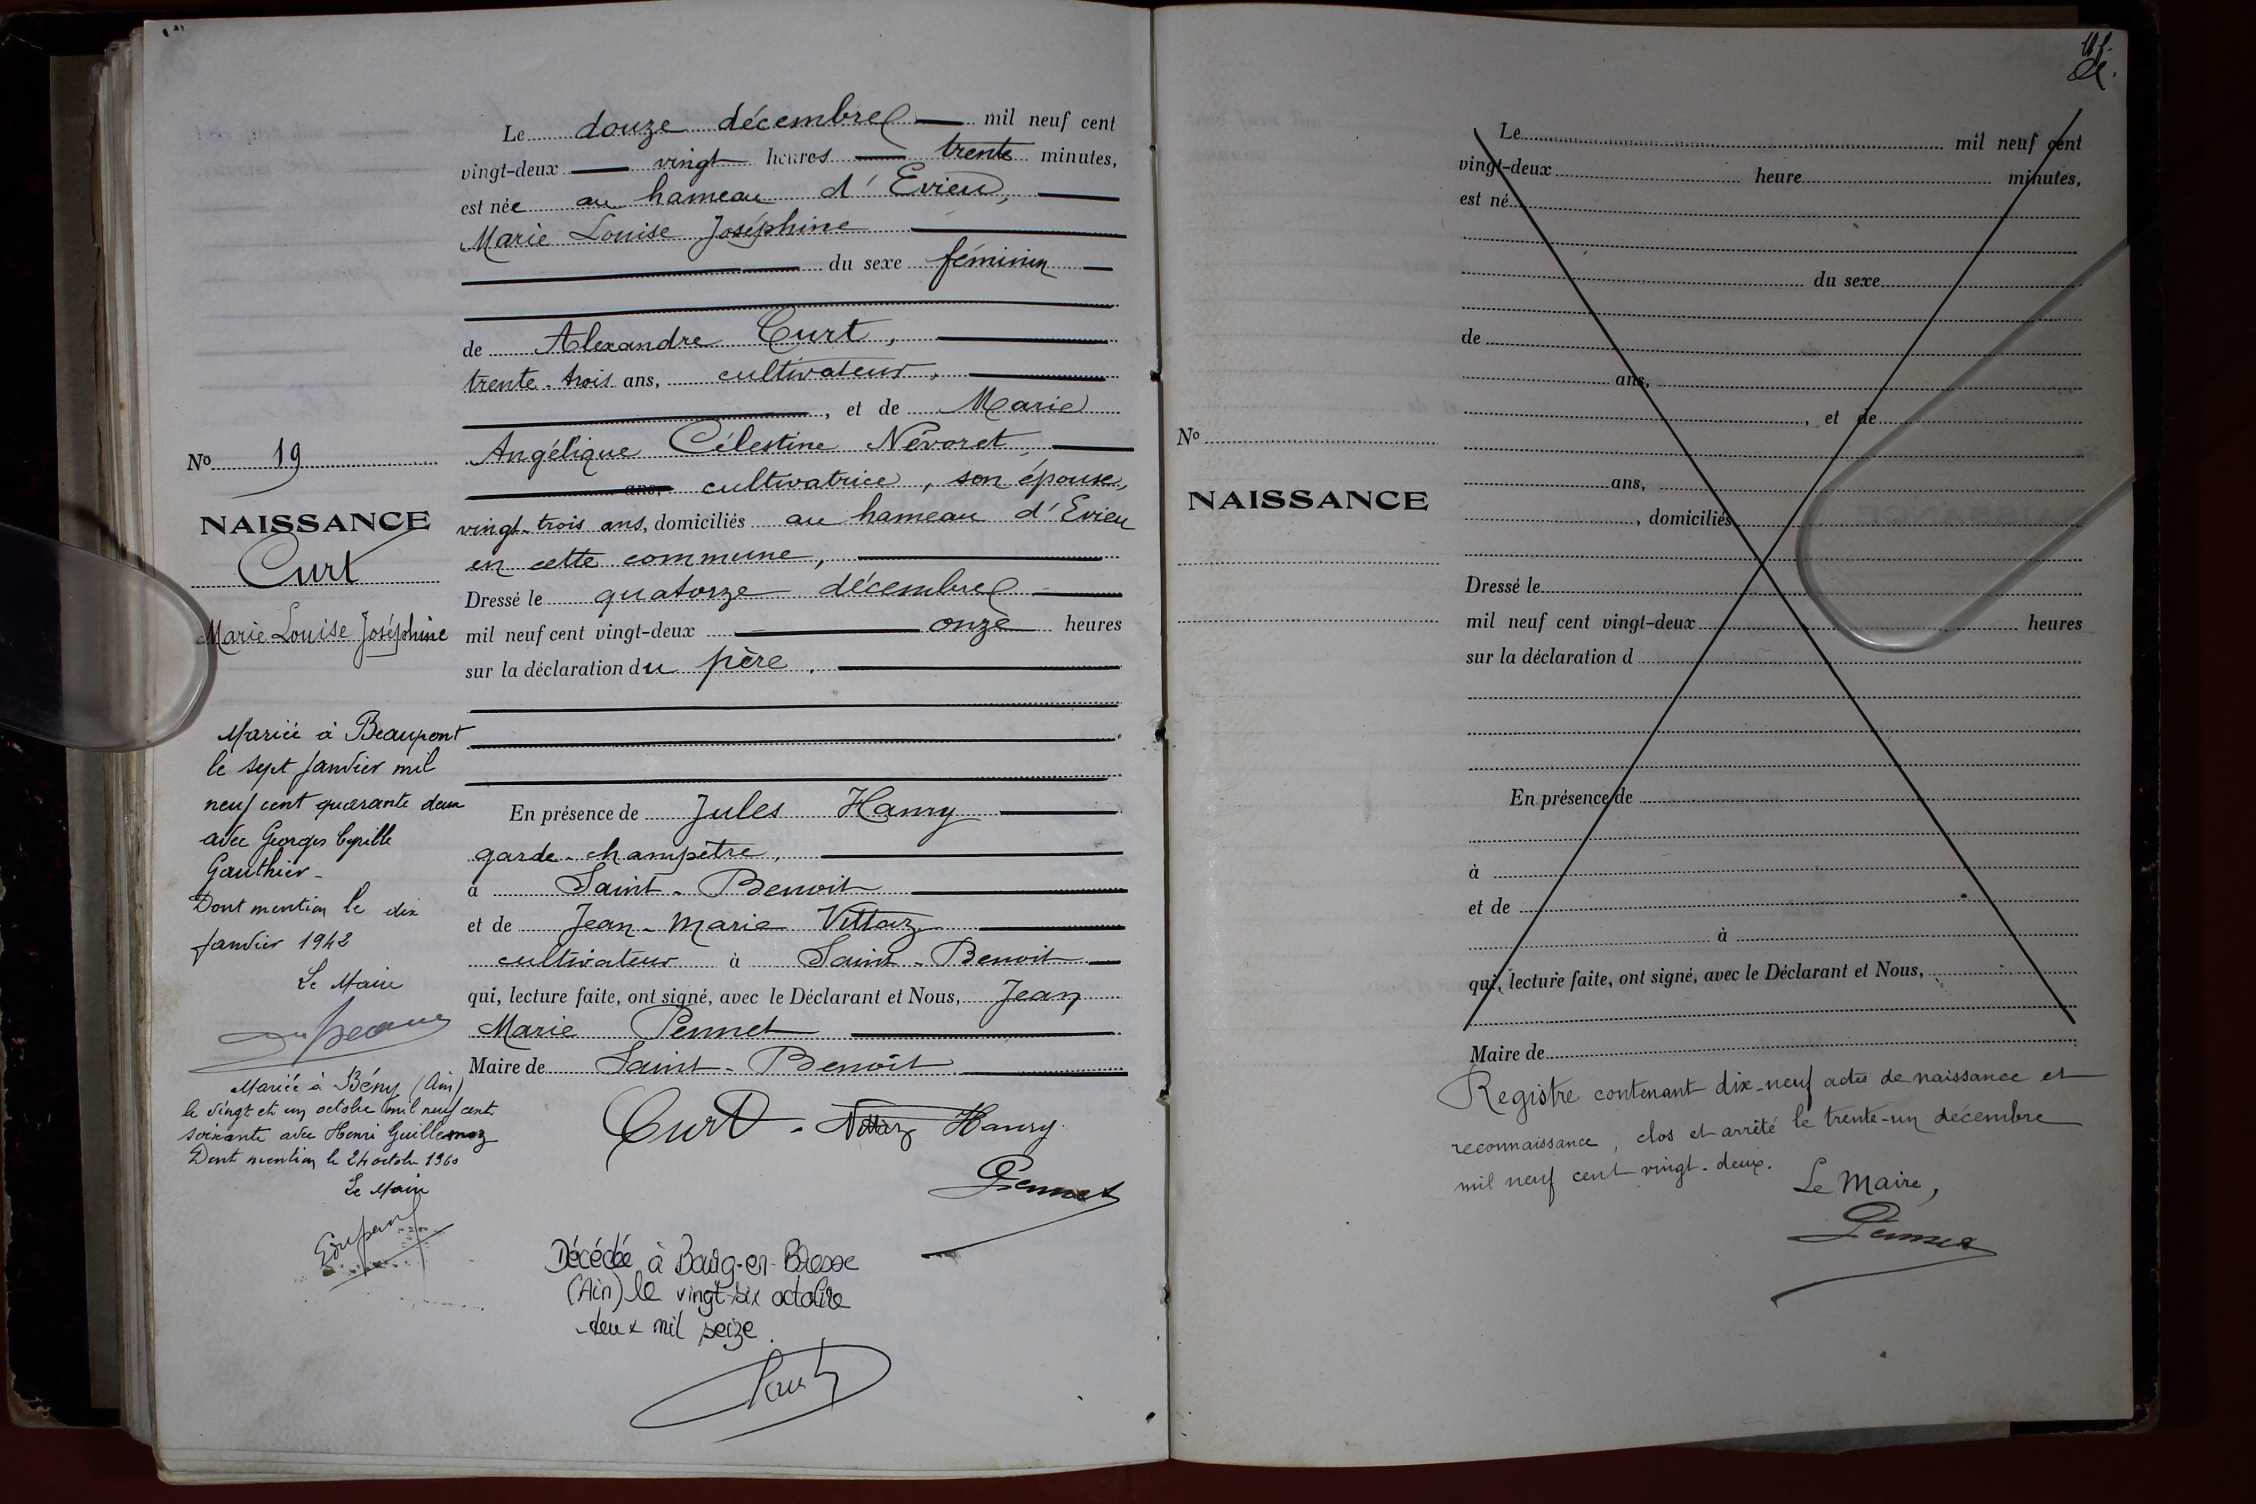 Le douze décembre mil neuf cent
vingt-deux vingt heures trente minutes,
est née au hameau d'Evieu,
Marie Louise Joséphine
du sexe féminin
de Alexandre Curt,
trente-trois ans, cultivateur,
, et de Marie
Angélique Célestine Névoret
ans, cultivatrice, son épouse,
vingt-trois ans, domiciliés au hameau d'Evieu
en cette commune,
Dressé le quatorze décembre
mil neuf cent vingt-deux onze heures
sur la déclaration du père.
En présence de Jules Hanry
garde-champêtre,
à Saint-Benoit
et de Jean-Marie Vittoz
cultivateur à Saint-Benoit
qui, lecture faite, ont signé, avec le Déclarant et Nous, Jean
Marie Pennet
Maire de Saint-Benoît
Curt Hanry
Pennet
Décédée à Bourg-en-Bresse
(Ain) le vingt-six octobre
deux mil seize.
No 19
NAISSANCE
Curt
Marie Louise Joséphine
Mariée à Beaupont
le sept Janvier mil
neuf cent quarante deux
avec Georges Cyrille
Gauthier-
Dont mention le dix
Janvier 1942
Le Maire
Mariée à Bény (Ain)
le vingt et un octobre mil neuf cent
soixante avec Henri Guillermoz
Dont mention le 24 octobre 1960
Le Maire
No
NAISSANCE
Le mil neuf cent
vingt-deux heure minutes,
est né
du sexe
de
ans,
, et de
ans,
, domiciliés
Dressé le
mil neuf cent vingt-deux heures
sur la déclaration d
En présence de
à
et de
à
qui, lecture faite, ont signé, avec le Déclarant et Nous,
Maire de
Registre contenant dix-neuf actes de naissance et
reconnaissance, clos et arrêté le trente-un décembre
mil neuf cent vingt-deux.
Le Maire,
Pennet